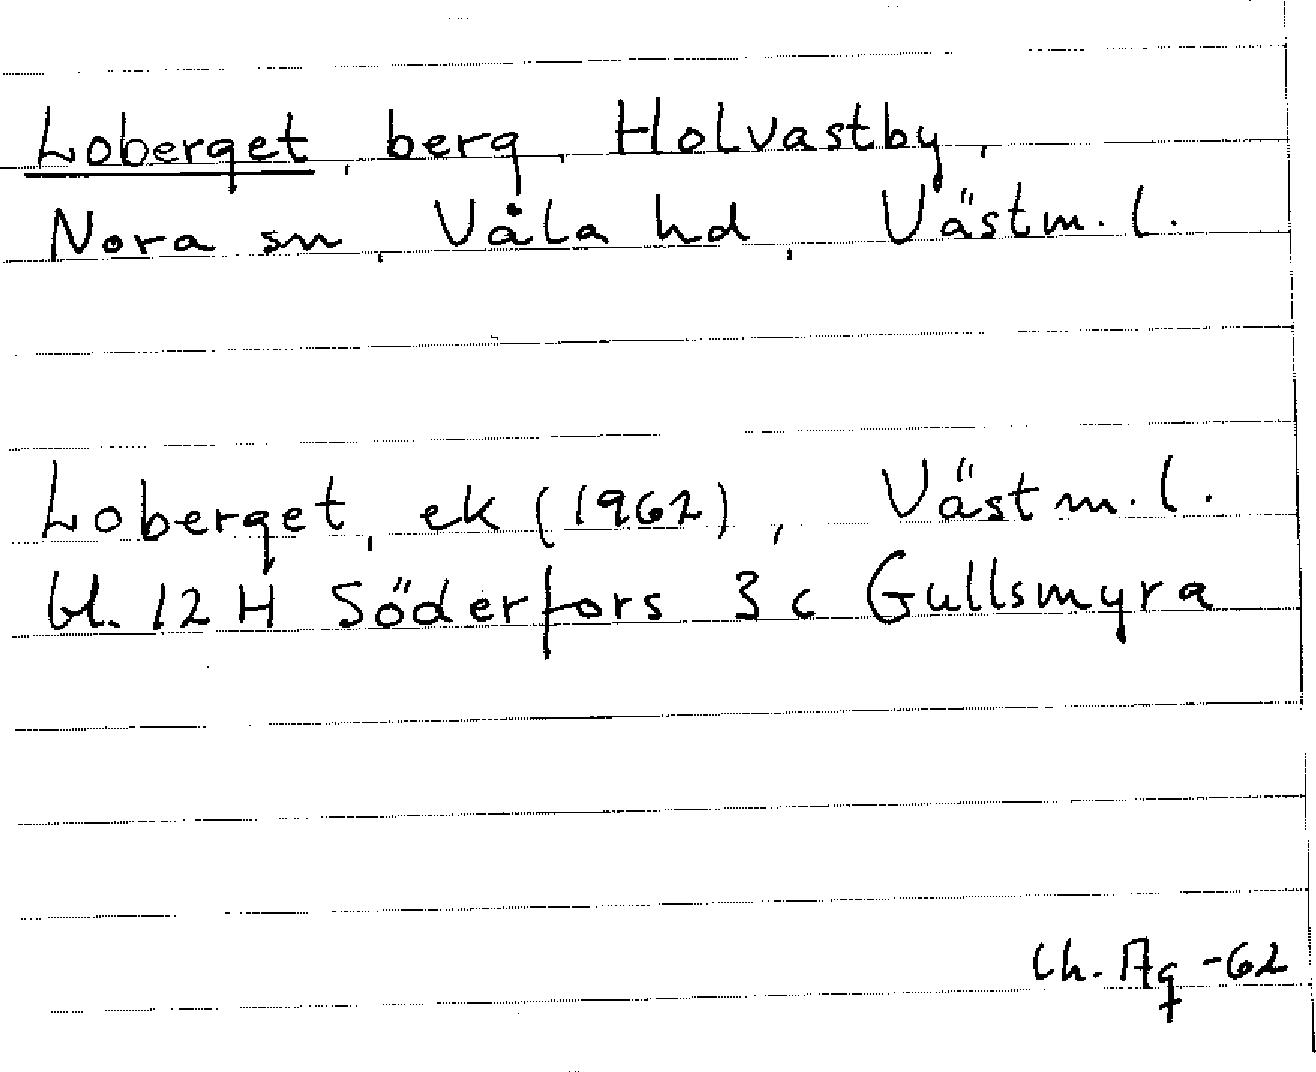 Loberget, berg, Holvastby,
Nora sn, Våla hd, Västm. l.
Loberget, ek (1962), Västm. l.
bl. 12 H Söderfors 3 c Gullsmyra
Ch. Ag -62